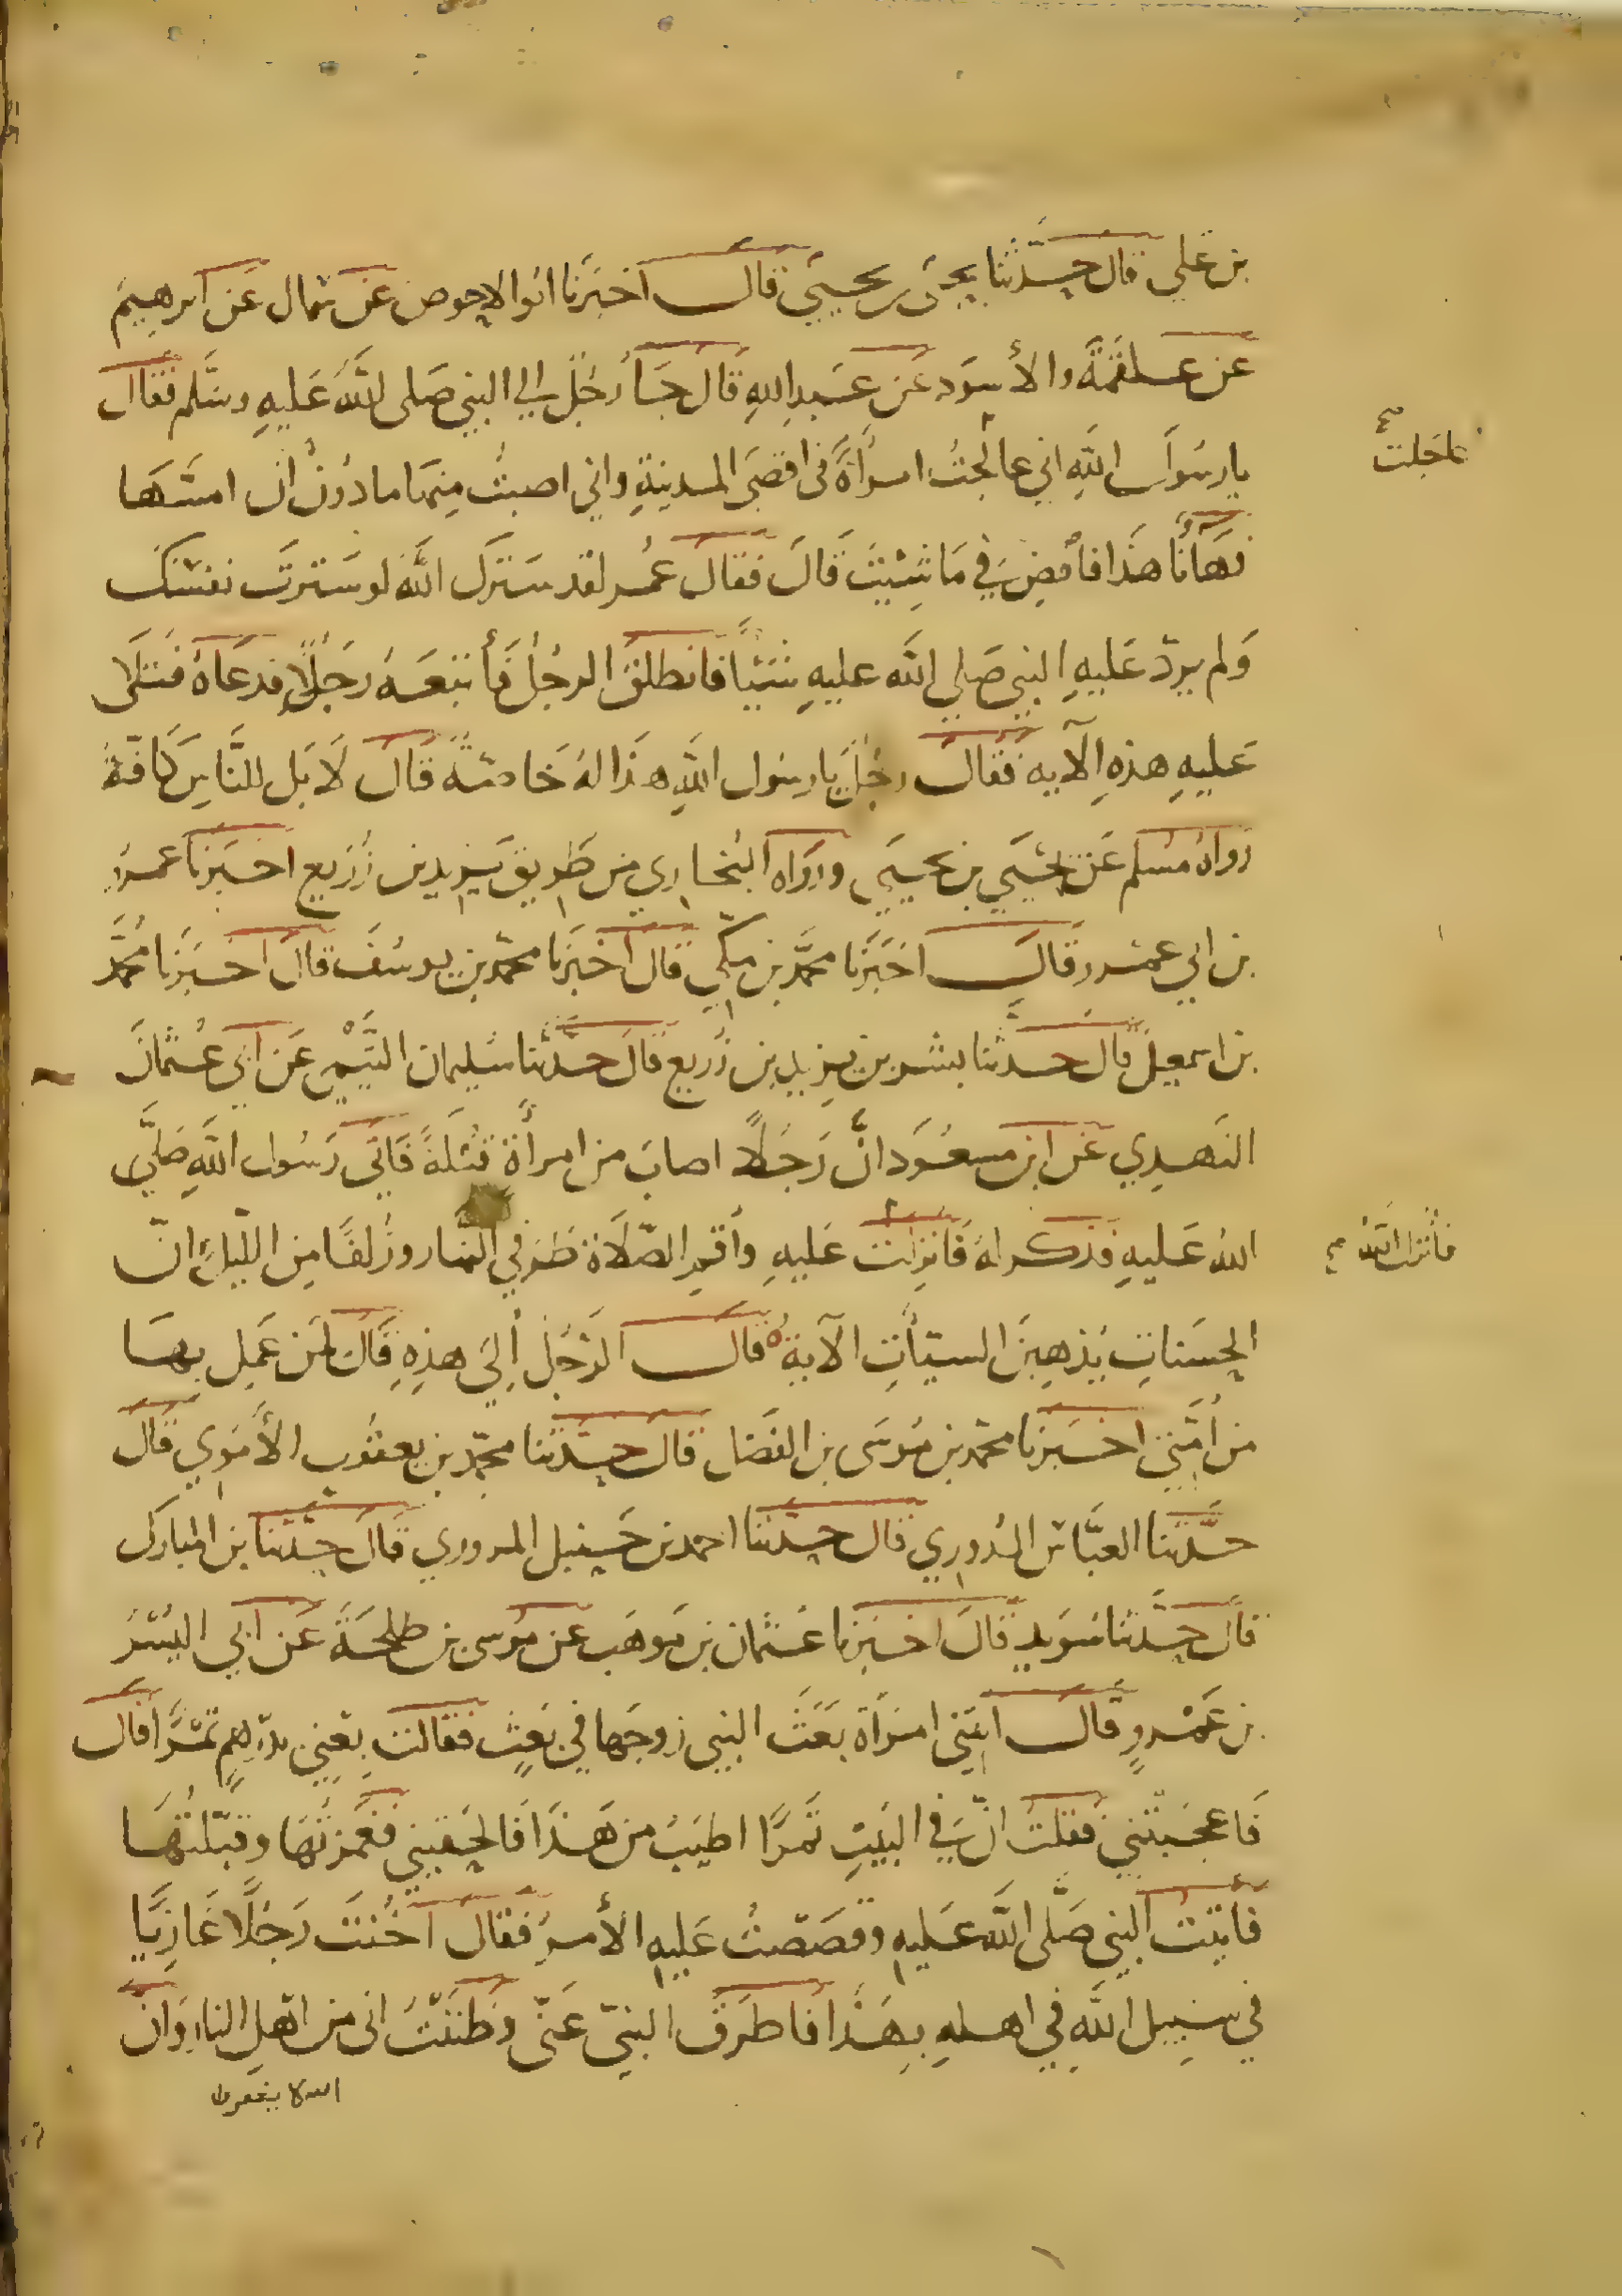 بن علي قال حدثنا يحيى بن يحيى قال اخبرنا ابو الاحوص عن سماك عن ابرهيم
عن علقمة والأسود عن عبد الله قال جاء رجل الي النبي صلى الله عليه وسلم فقال
يا رسول الله اني عالجت امرأة في اقصى المدينة واني اصبت منها ما دون ان امسها
فها انا هذا فاقض في ما شيت قال فقال عمر لقد سترك الله لو سترت نفسك
ولم يرد عليه النبي صلي الله عليه شيئا فانطلق الرجل فأتبعه رجلا فدعاه فتلا
عليه هذه الآيه فقال رجل يا رسول الله هذا له خاصة قال لا بل للناس كافة
رواه مسلم عن يحيي بن يحيي ورواه البخاري من طريق يزيد بن زريع اخبرنا عمر
بن ابي عمرو قال اخبرنا محمد بن مكي قال اخبرنا محمد بن يوسف قال اخبرنا محمد
بن اسمعيل قال حدثنا بشر بن يزيد بن زريع قال حدثنا سليمان التيمي عن ابي عثمان
النهدي عن ابن مسعود ان رجلا اصاب من امرأة قبلة فاتي رسول الله صلي
الله عليه فذكر له فانزلت عليه وأقم الصلاة طرفي النهار وزلفا من الليل ان
الحسنات يذهبن السيئات الآية قال الرجل ألي هذه قال لمن عمل بها
من أمتي اخبرنا محمد بن موسى بن الفضل قال حدثنا محمد بن يعقوب الأموي قال
حدثنا العباس الدوري قال حدثنا احمد بن حنبل المروري قال حدثنا بن المبارك
قال حدثنا سويد قال اخبرنا عثمان بن موهب عن موسى بن طلحة عن ابي اليسر
بن عمرو قال اتتني امرأة بعث النبي زوجها في بعث فقالت بعني بدرهم تمرا قال
فاعجبتني فقلت ان في البيت تمرا اطيب من هذا فالحقيني فغمزتها وقبلتها
فأتيت النبي صلى الله عليه وقصصت عليه الأمر فقال اخنت رجلا غازيا
في سبيل الله في اهله بهذا فاطرق النبي عني وظننت اني من اهل النار وان
الله لا يغفر لي
عاجلت صح
فأنزل الله صح